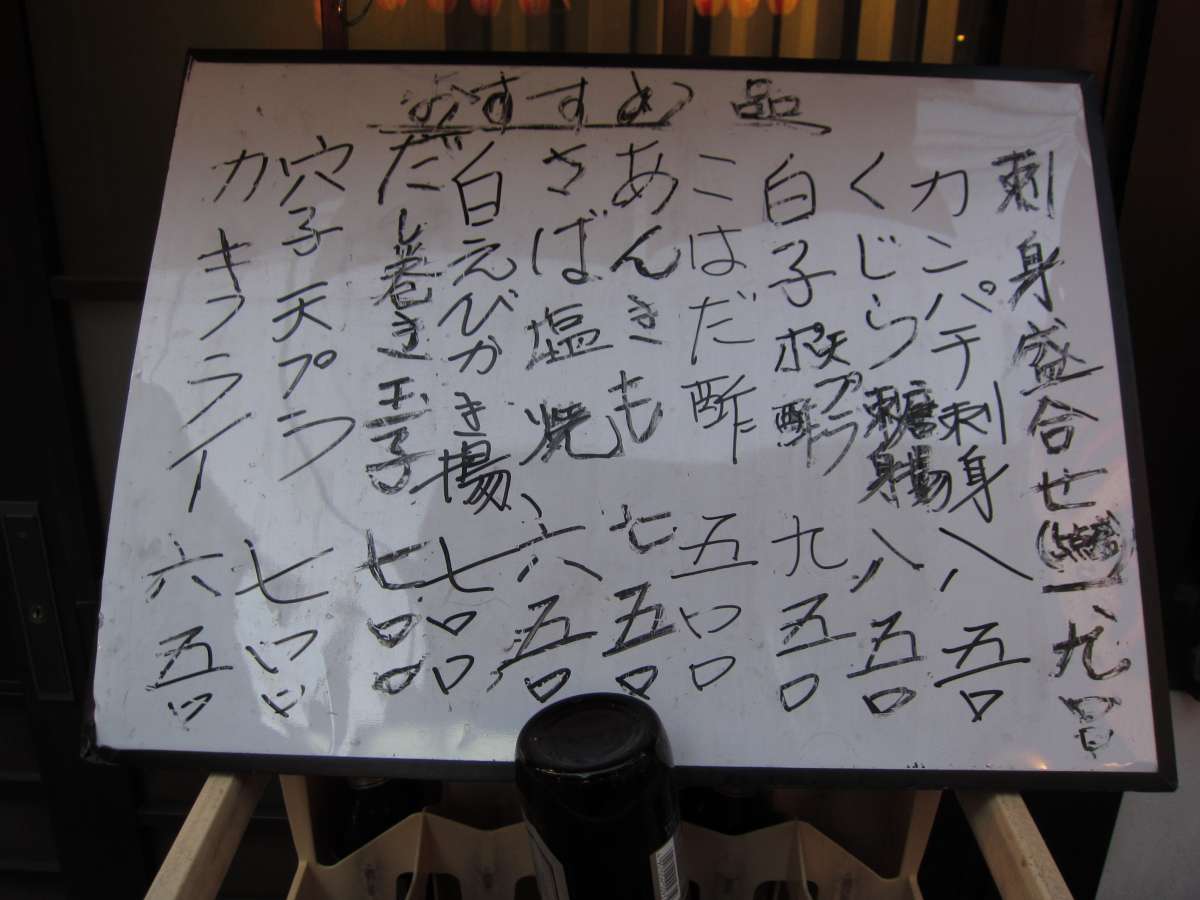 おすすめ 品
刺身盛合せ(5点盛)一、九〇〇
カンパチ刺身 八五〇
くじら 刺身 竜田揚 八五〇
白子 ポン酢 天プラ 九五〇
こはだ酢 五〇〇
あんきも 七五〇
さば塩焼、六五〇
白えびかき揚 七〇〇
だし巻き玉子 七〇〇
穴子天プラ 七〇〇
カキフライ 六五〇